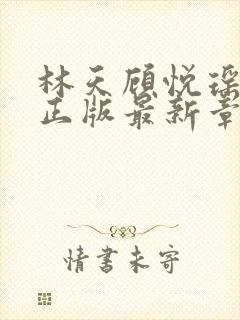 林天顾悦瑶
正版最新章
情书未寄